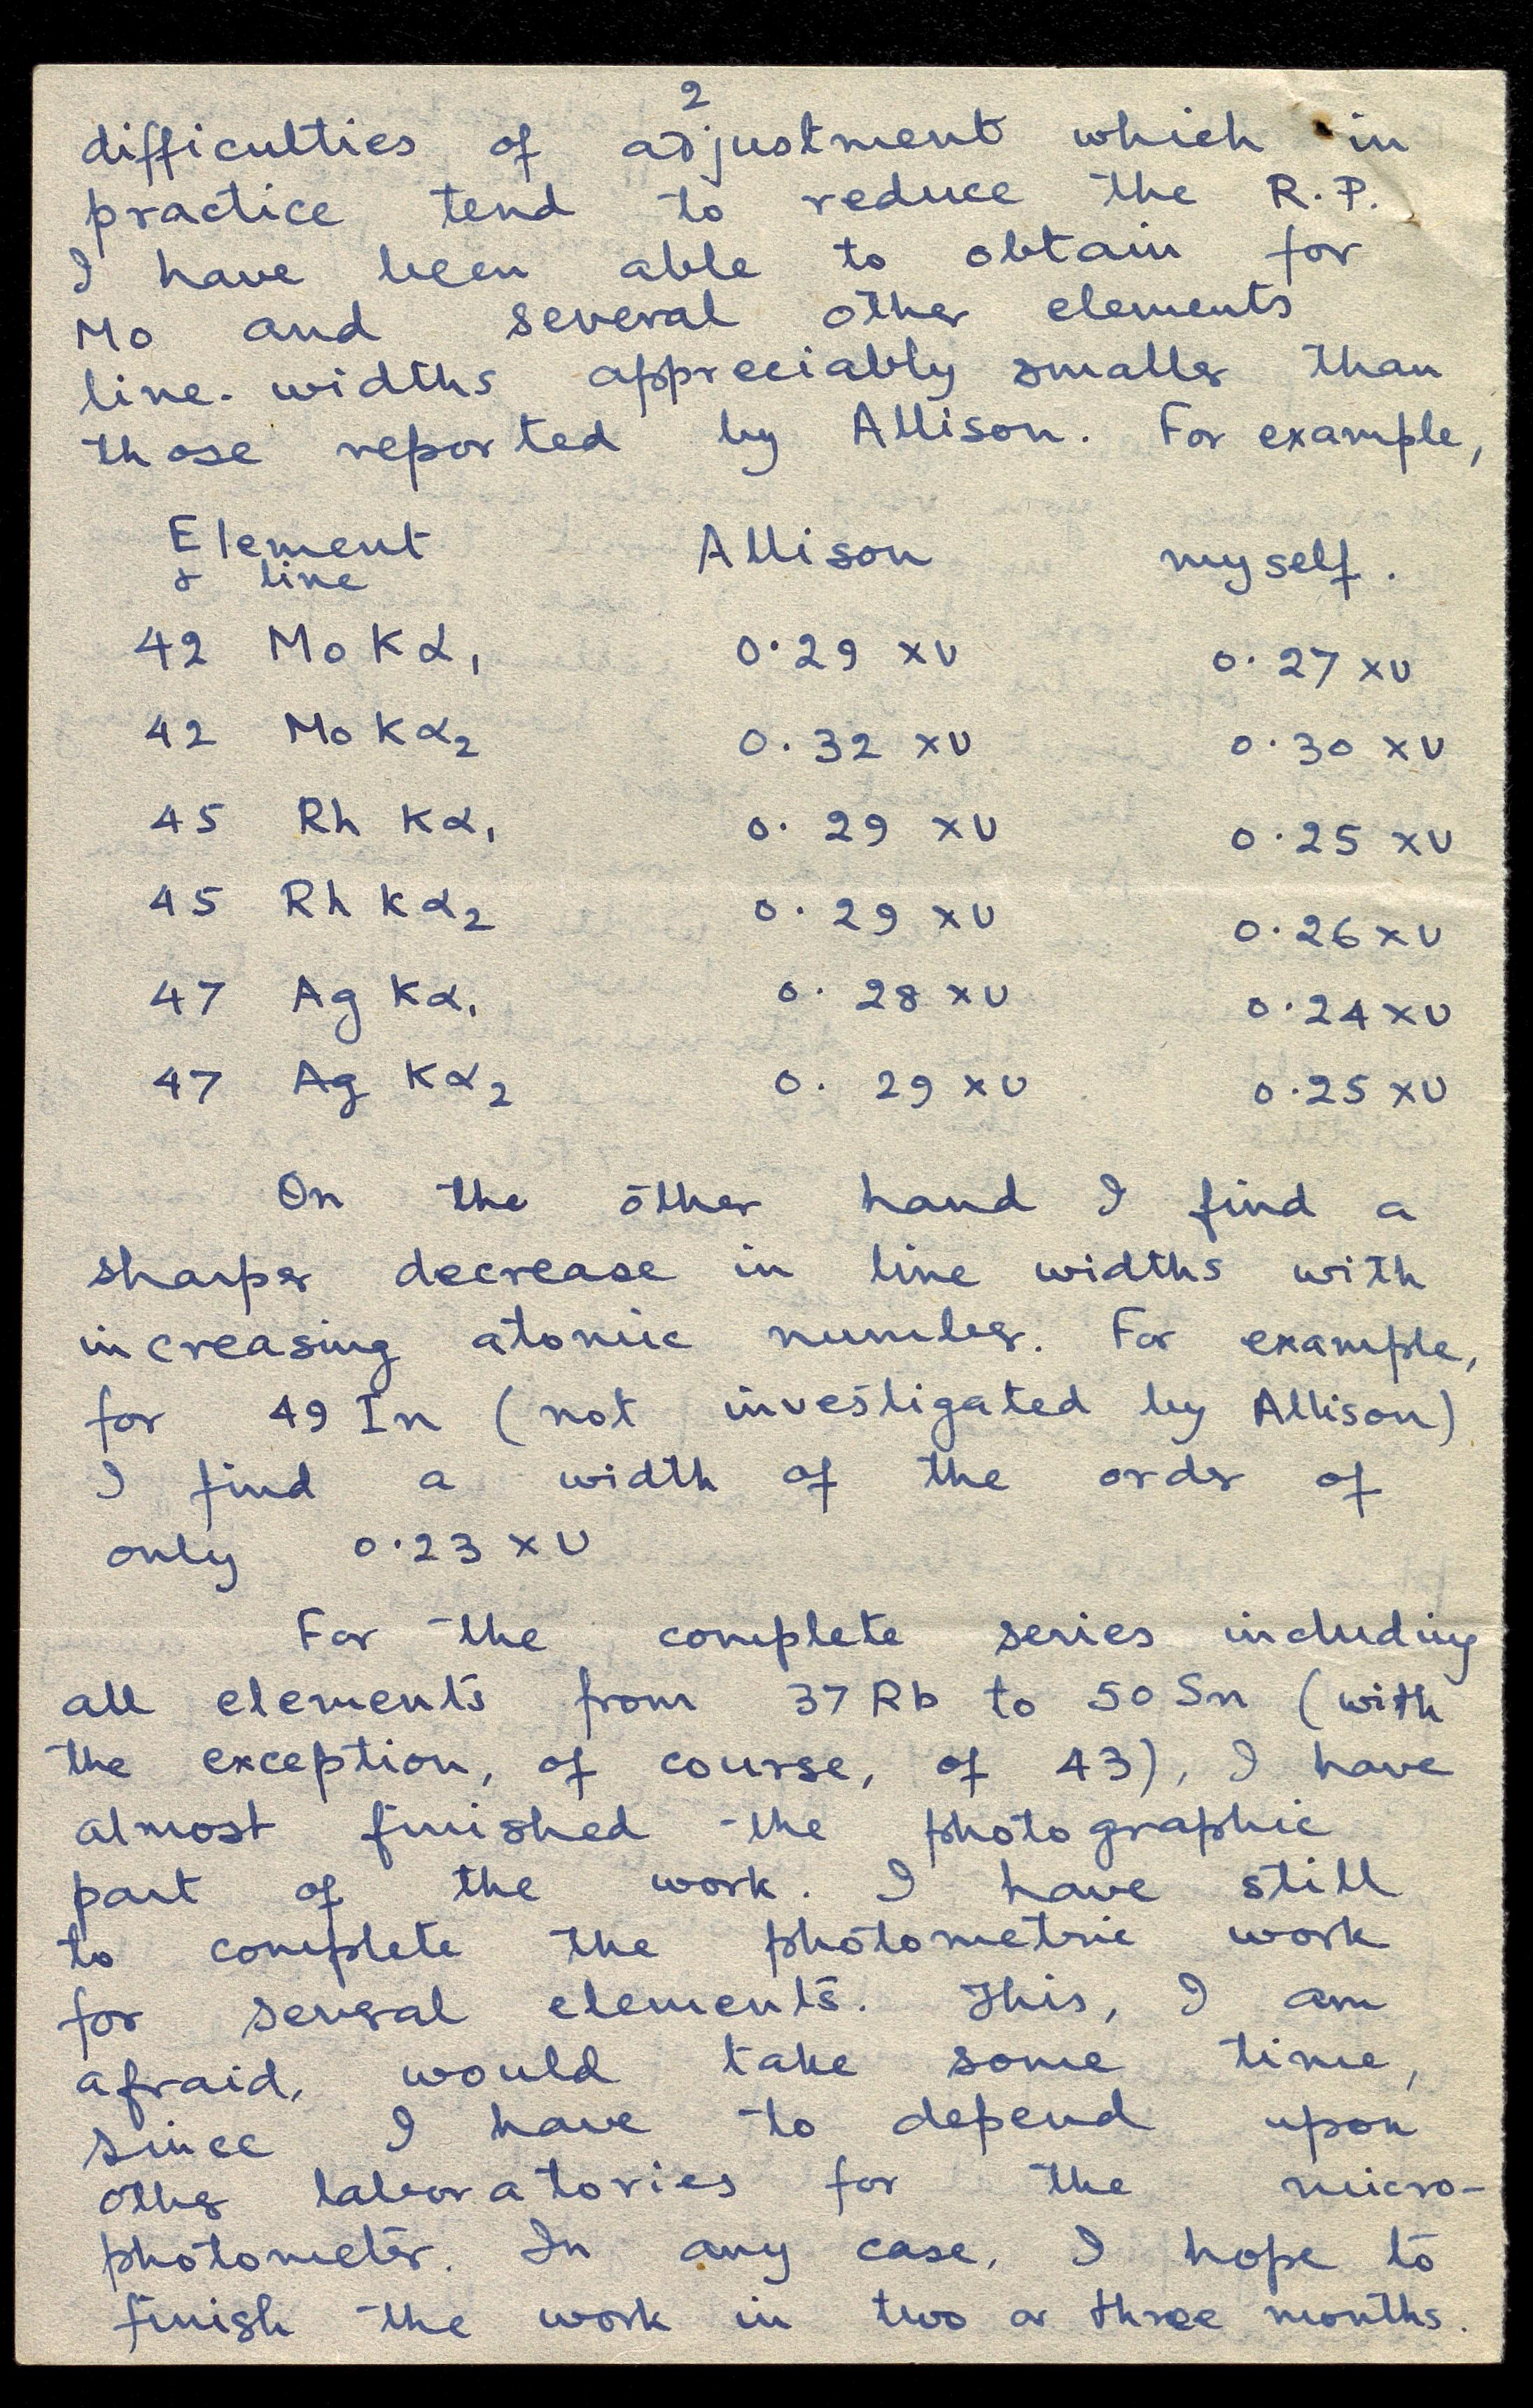 2
difficulties of adjustment which in
practice tend to reduce the R.P.
I have been able to obtain for
Mo and several other elements
line-widths appreciably smaller than
those reported by Allison. For example,
Element Allison myself.
& line
42 Mo Kα₁ 0.29 XU 0.27 XU
42 Mo Kα₂ 0.32 XU 0.30 XU
45 Rh Kα₁ 0.29 XU 0.25 XU
45 Rh Kα₂ 0.29 XU 0.26 XU
47 Ag Kα₁ 0.28 XU 0.24 XU
47 Ag Kα₂ 0.29 XU 0.25 XU
On the other hand I find a
sharper decrease in line widths with
increasing atomic number. For example,
for 49 In (not investigated by Allison)
I find a width of the order of
only 0.23 XU
For the complete series including
all elements from 37 Rb to 50 Sn (with
the exception, of course, of 43), I have
almost finished the photographic
part of the work. I have still
to complete the photometric work
for several elements. This, I am
afraid, would take some time,
since I have to depend upon
other laboratories for the micro-
photometer. In any case, I hope to
finish the work in two or three months.